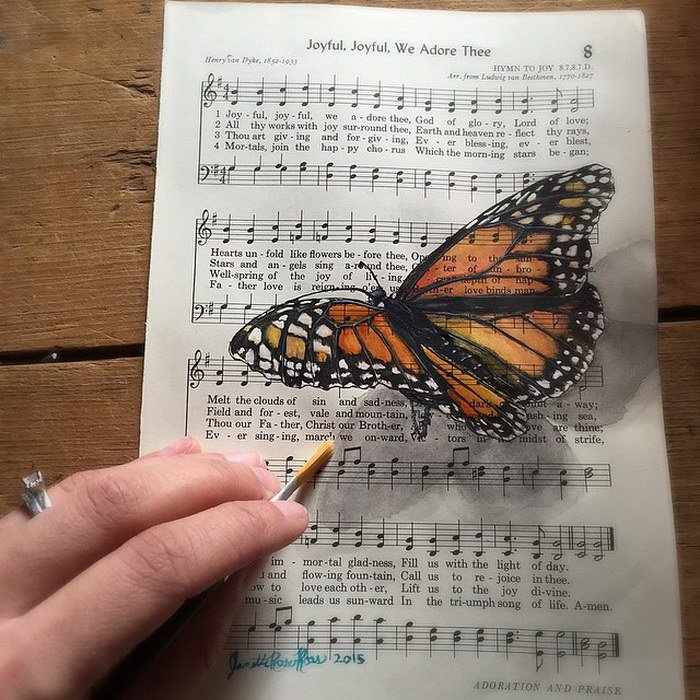 Joyful, Joyful, We Adore Thee
8
Henry van Dyke, 1852-1933
HYMN TO JOY 8.7.8.7.D.
Arr. from Ludwig van Beethoven, 1770-1827
1 Joy - ful, joy - ful, we a - dore thee, God of glo - ry, Lord of love;
2 All thy works with joy sur - round thee, Earth and heaven re - flect thy rays,
3 Thou art giv - ing and for - giv - ing, Ev - er bless - ing, ev - er blest,
4 Mor - tals, join the hap - py cho - rus Which the morn - ing stars be - gan;
Hearts un - fold like flowers be - fore thee, Op ing to the
Stars and an - gels sing a - round thee, ter of un - bro
Well - spring of the joy of liv - ing, depth of hap
Fa - ther love is reign - ing o'er us, er love binds man
Melt the clouds of sin and sad - ness, dark a - way;
Field and for - est, vale and moun - tain, ash - ing sea,
Thou our Fa - ther, Christ our Broth - er, love are thine;
Ev - er sing - ing, march we on - ward, tors in midst of strife,
im - mor - tal glad - ness, Fill us with the light of day.
and flow - ing foun - tain, Call us to re - joice in thee.
to love each oth - er, Lift us to the joy di - vine.
mu - sic leads us sun - ward In the tri - umph song of life. A - men.
2015
ADORATION AND PRAISE